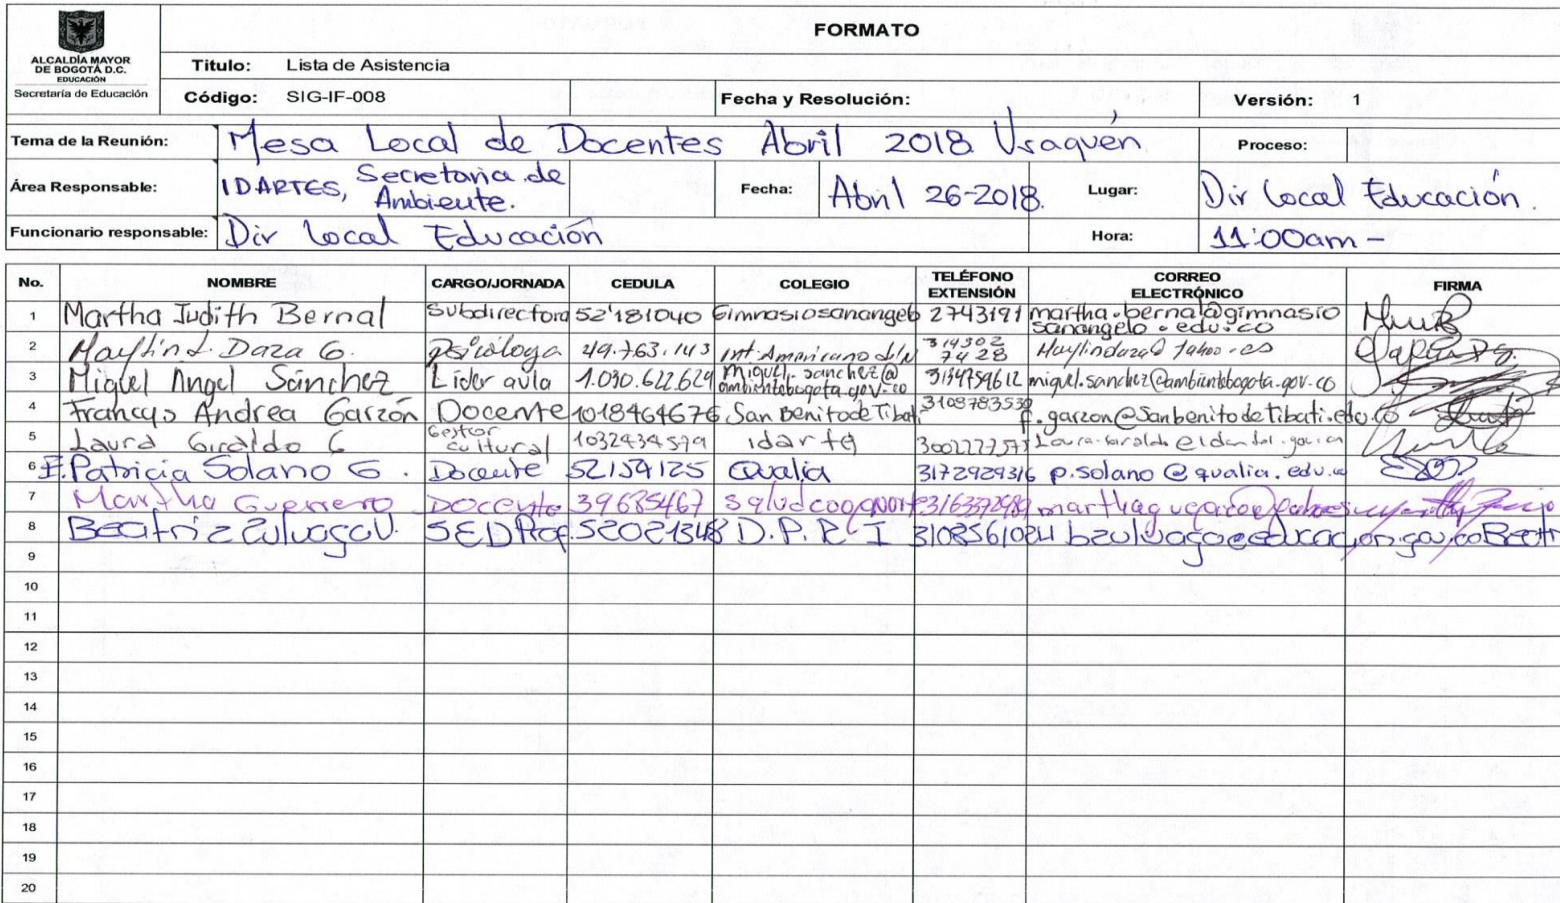 FORMATO
ALCALDÍA MAYOR
DE BOGOTÁ D.C.
EDUCACIÓN
Secretaría de Educación
Titulo: Lista de Asistencia
Código: SIG-IF-008 Fecha y Resolución: Versión: 1
Tema de la Reunión: Mesa Local de Docentes Abril 2018 Usaquén Proceso:
Área Responsable: IDARTES, Secretaria de Ambiente. Fecha: Abril 26-2018. Lugar: Dir Local Educación.
Funcionario responsable: Dir Local Educación Hora: 11:00am -
No. NOMBRE CARGO/JORNADA CEDULA COLEGIO TELÉFONO EXTENSIÓN CORREO ELECTRÓNICO FIRMA
1 Martha Judith Bernal Subdirectora 52'181040 Gimnasio sanangelo 2743191 martha.bernal@gimnasio
sanangelo.edu.co
2 Maylin L. Daza G. Psicóloga 49.763.143 Int. Americano 314302
7428
3 Miguel Angel Sánchez Líder aula 1.030.622.629 miguel.sanchez@
ambientebogota.gov.co 3134759612 miguel.sanchez@ambientebogota.gov.co
4 Andrea Garzón Docente 1018464676 San Benito de Tibati 3108783539 f.garzon@sanbenitodetibati.edu.co
5 Laura Giraldo G Gestor
cultural 1032434579 idartes
6 E. Patricia Solano G. Docente 52154125 Qualia 3172929316 p.solano@qualia.edu.co
7 Martha Guerrero Docente 39685467
8 Beatriz Zuluaga V. SED Prof. 52021348 D.P.R.I 3108561024 bzuluaga@educacion.gov.co Beatr
9
10
11
12
13
14
15
16
17
18
19
20